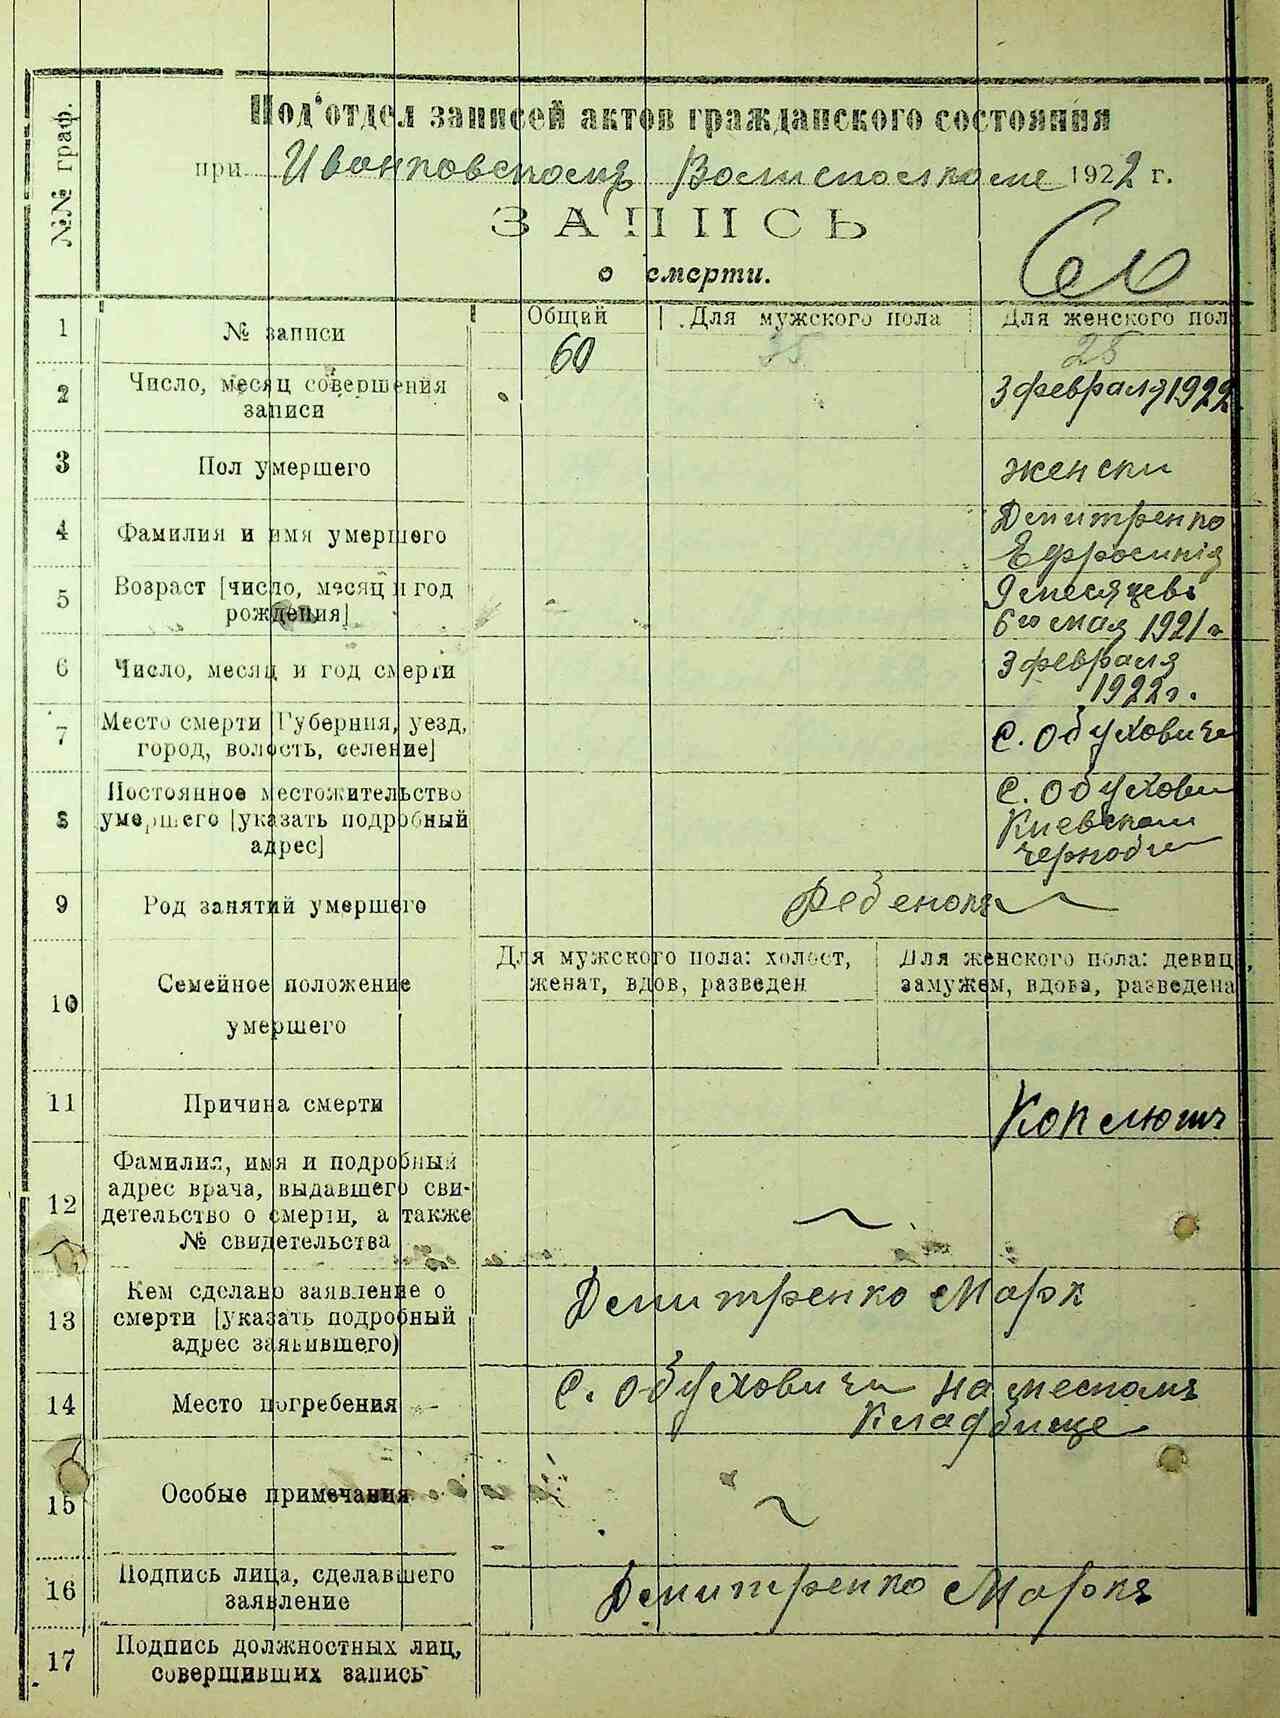 №№ граф.
Под'отдел записей актов гражданского состояния
при Иванковском Волисполкоме 1922 г.
ЗАПИСЬ
о смерти.
1 № записи Общий Для мужского пола Для женского пол
60 35 25
2 Число, месяц совершения
записи
3 февраля 1922
3 Пол умершего
женски
4 Фамилия и имя умершего
Демитренко
Ефросинія
5 Возраст [число, месяц и год
рождения]
9 месяцевъ
6го мая 1921 г
6 Число, месяц и год смерти
3 февраля
1922 г.
7 Место смерти [Губерния, уезд,
город, волость, селение]
С. Обуховичи
8 Постоянное местожительство
умершего [указать подробный
адрес]
С. Обухови
Киевской
Чернобы
9 Род занятий умершего
Ребенокъ
10 Семейное положение
умершего
Для мужского пола: холост,
женат, вдов, разведен
Для женского пола: девиц,
замужем, вдова, разведена
11 Причина смерти
Коклюшъ
12 Фамилия, имя и подробный
адрес врача, выдавшего сви-
детельство о смерти, а также
№ свидетельства
13 Кем сделано заявление о
смерти [указать подробный
адрес заявившего)
Демитренко Марк
14 Место погребения
С. Обуховичи на местомъ
Кладбище
15 Особые примечания
16 Подпись лица, сделавшего
заявление
Демитренко Маркъ
17 Подпись должностных лиц,
совершивших запись